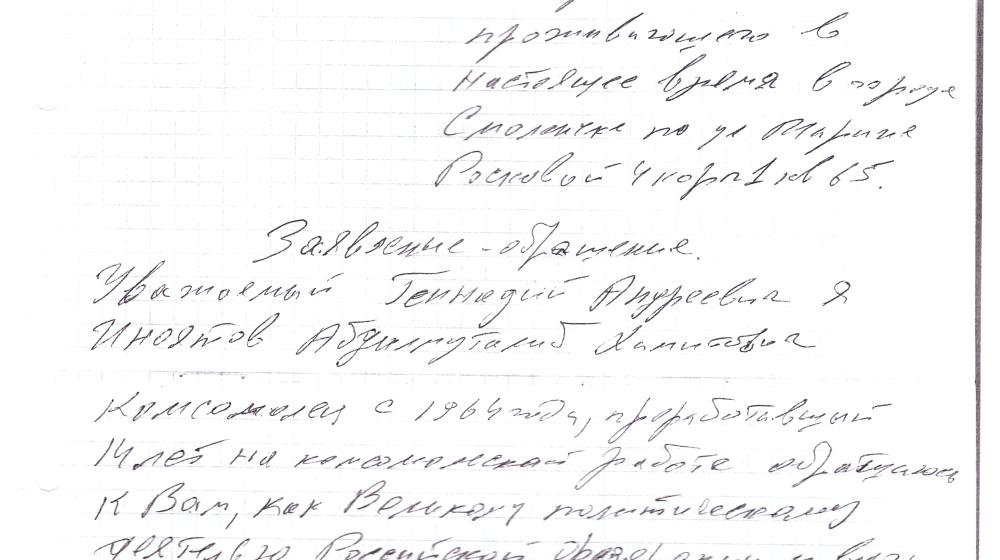 проживающего в
настоящее время в городе
Смоленске по ул Марине
Росковой 4 корп 1 кв 65.
Заявление - обращение.
Уважаемый Геннадий Андреевич я
Иноятов Абдулмуталиб Хамитович
Комсомолец с 1964 года, проработавший
14 лет на комсомольской работе обращаюсь
к Вам, как Великому политическому
деятелю Российской